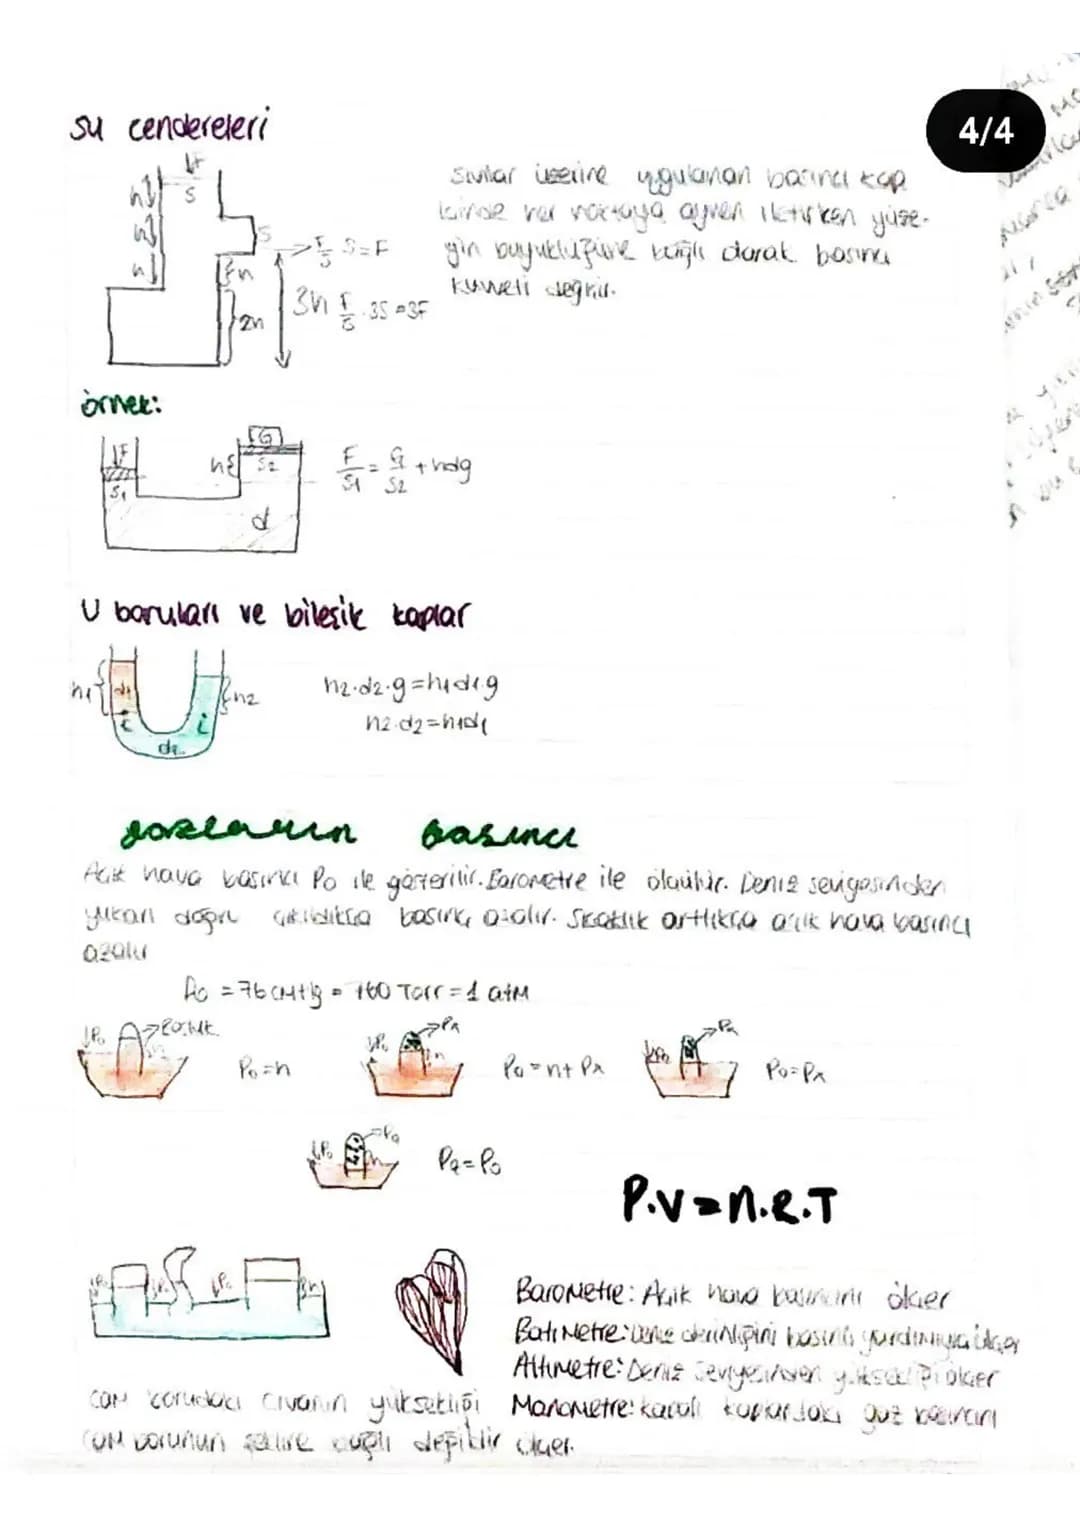 4/4
Su cendereleri
↓F
S
h
h
h
S
h
2h
3h
F/S S=F
F/S .3S=3F
Sıvılar üzerine uygulanan basıncı kap
içinde her noktaya aynen iletirken yüze-
yin büyüklüğüne bağlı olarak basınç
kuvveti değişir.
örnek:
↓F
S1
h
G
S2
d
F/S1 = G/S2 + hdg
U boruları ve bileşik kaplar
h1
d1
h2
d2
h2.d2.g=h1d1.g
h2.d2=h1d1
gazların basıncı
Açık hava basıncı P0 ile gösterilir. Barometre ile ölçülür. Deniz seviyesinden
yukarı doğru çıkıldıkça basınç azalır. Sıcaklık arttıkça açık hava basıncı
azalır
P0 = 76 cmHg = 760 Torr = 1 atm
↓P0
h
P0=h
↓P0
h
P0=h+PA
↓P0
P0=PA
↓P0
h
P.V=n.R.T
↓P0
↓P0
h
Barometre: Açık hava basıncını ölçer
Batimetre: Deniz derinliğini basınç yardımıyla ölçer
Altimetre: Deniz seviyesinden yüksekliği ölçer
Manometre: kapalı kaplardaki gaz basıncını
ölçer.
cam borudaki civanın yüksekliği
cam borunun şekline bağlı değildir